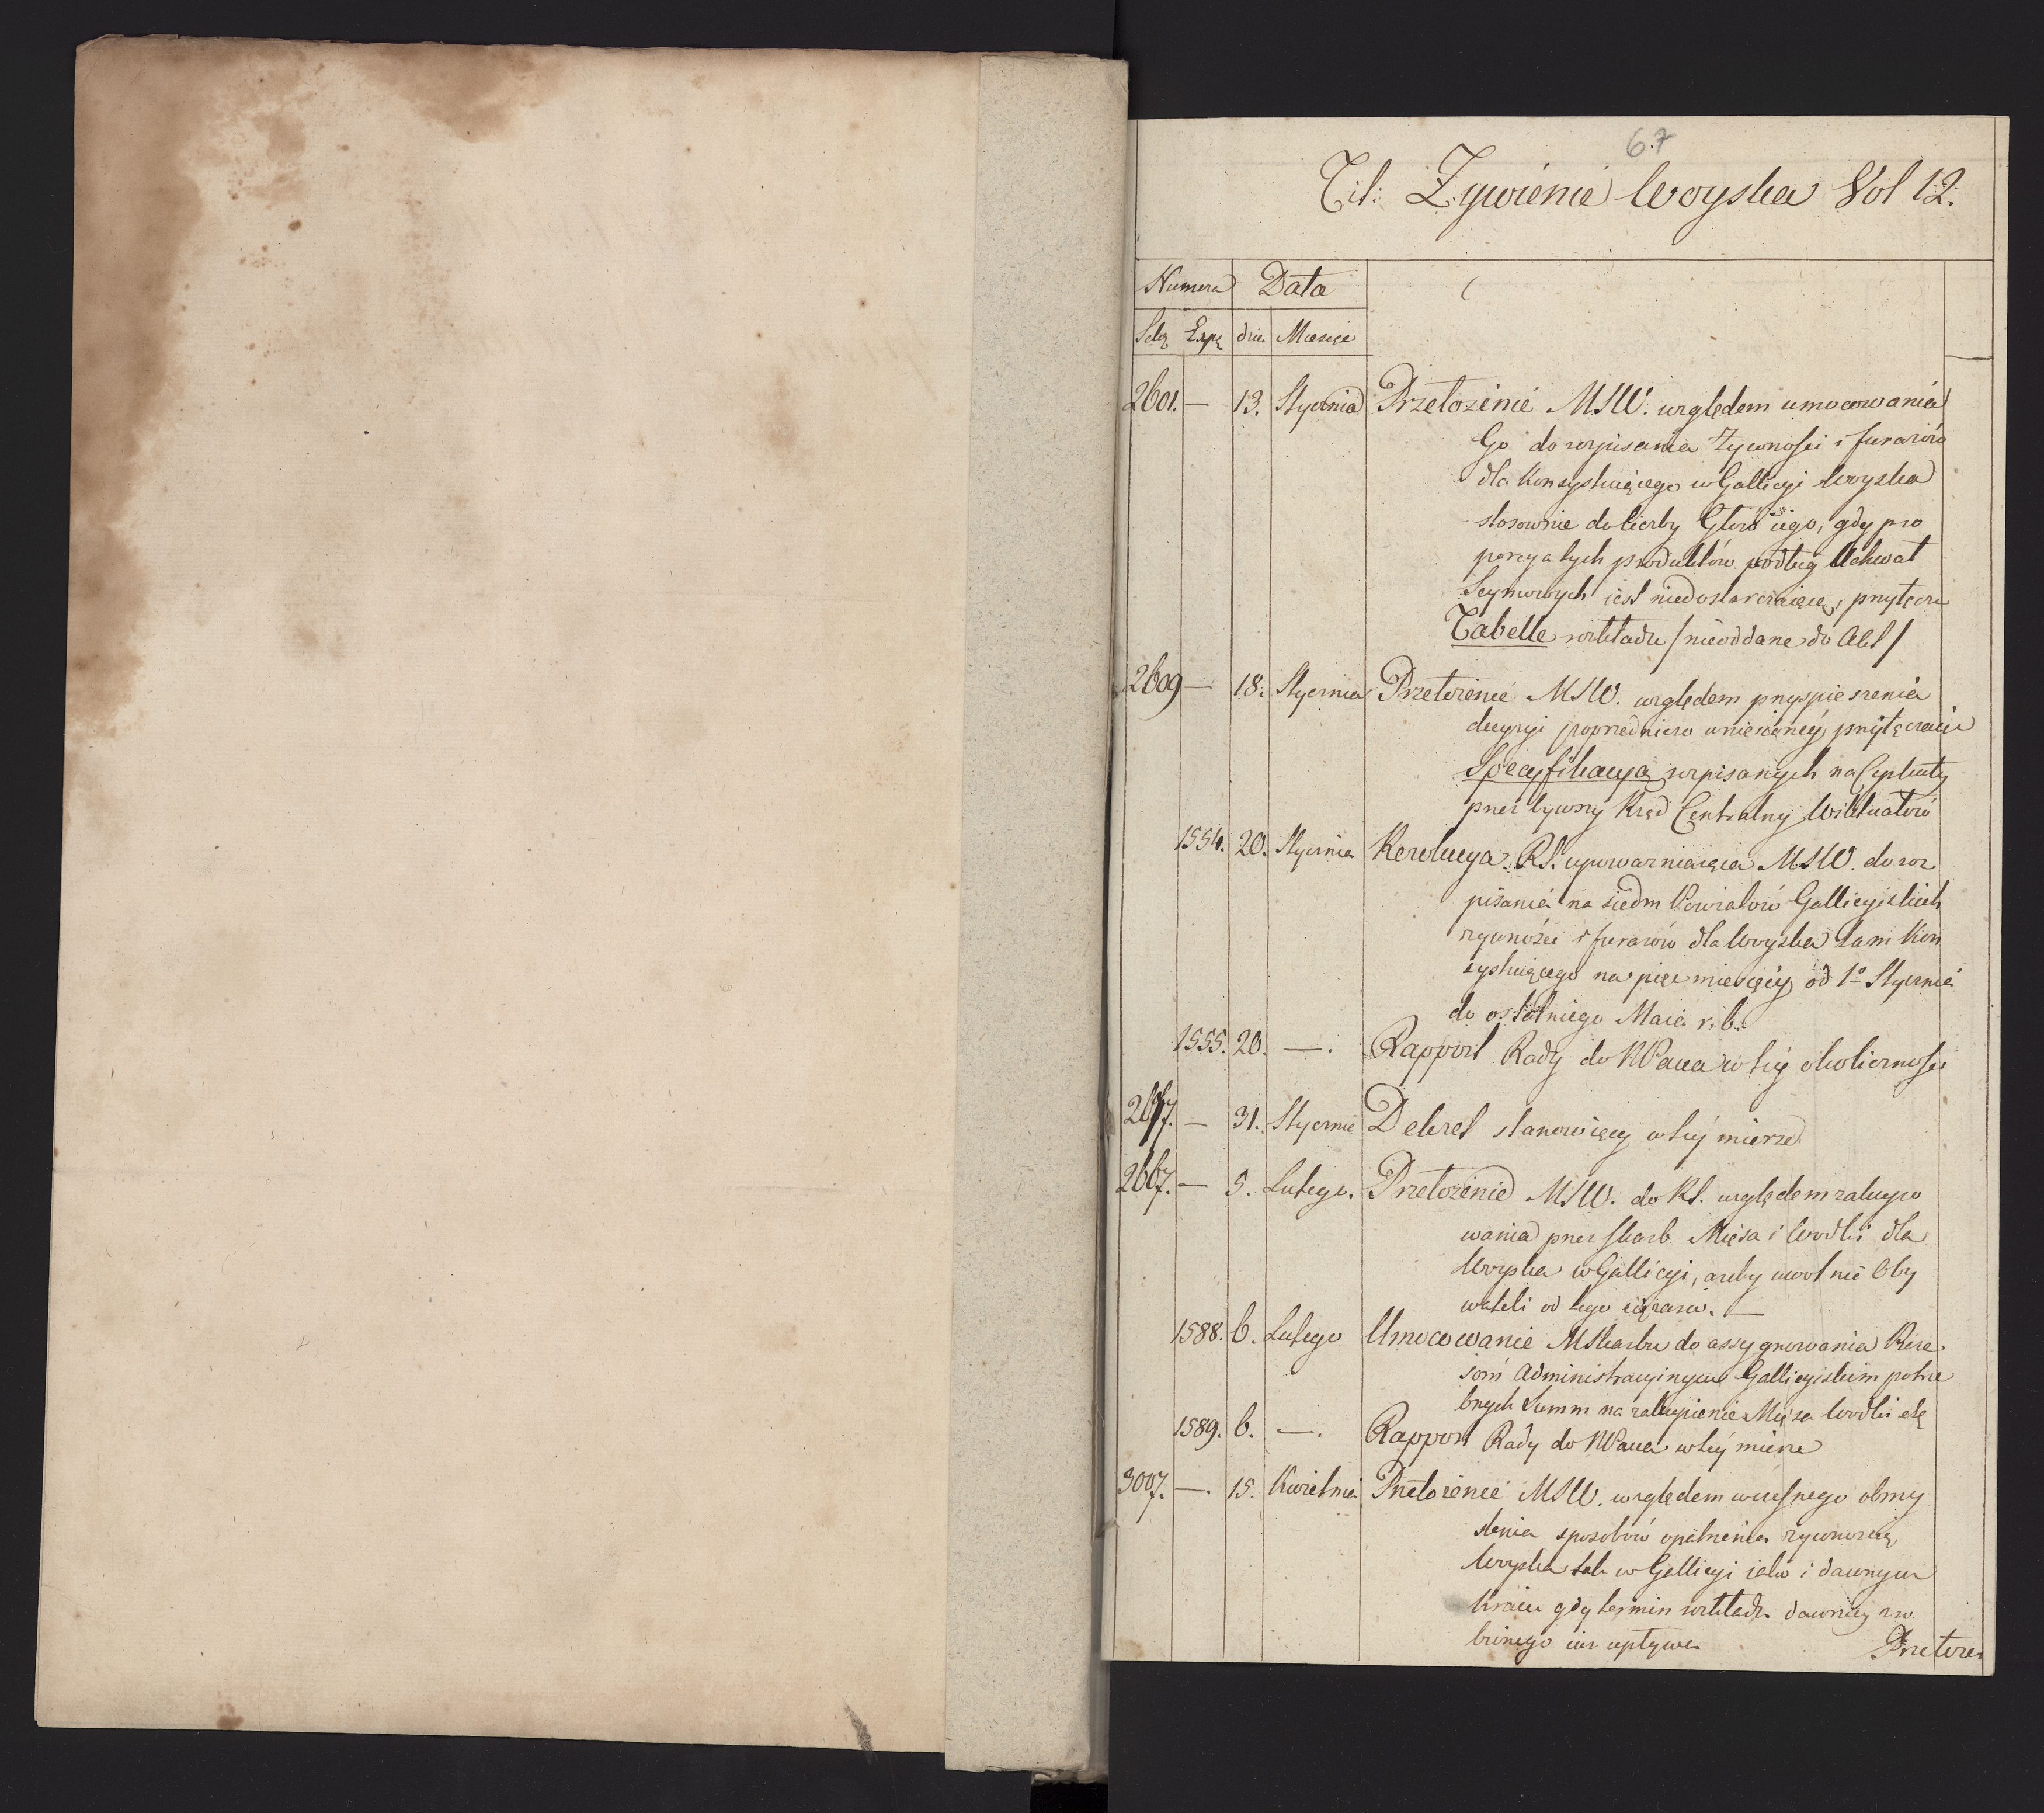 67
Tit: Zywienie Woyska Vol 12.
Numera Data
Selq Expę dnia Miesiąc
2601. — 13. Stycznia Przełożenie MSW. względem umocowania
Go do rozpisania żywności i furażów
dla konsystuiącego w Gallicyi Woyska
stosownie do liczby Głów iego, gdy pro
porcya tych produktów podług Uchwał
Seymowych iest niedostarczaiąca, przyłącza
Tabelle rozkładu / nieoddane do Akt /
2609 — 18. Stycznia Przełożenie MSW. względem przyspieszenia
decyzyi poprzedniczo wniesioney przyłączaiąc
Specyfikacyą rozpisanych na Cyrkuły
przez bywszy Rząd Centralny Wiktuałów
1554. 20. Stycznia Rezolucya RS. upoważniaiąca MSW. do roz
pisania na siedm Powiatów Gallicyiskich
żywności i furażów dla Woyska tam kon
systuiącego na pięć miesięcy od 1o Stycznia
do ostatniego Maia r. b.
1555. 20. — . Rapport Rady do NPana w tey okoliczności
— 31. Stycznia Dekret stanowiący w tey mierze
2667. — 5. Lutego. Przełożenie MSW. do RS. względem zakupo
wania przez skarb Mięsa i Wodki dla
Woyska w Gallicyi, ażeby uwolnić Oby
wateli od tego ciężaru. —
1588. 6. Lutego Umocowanie MSkarbu do assygnowania Kas
som Administracyinym Gallicyiskim potrze
bnych Summ na zakupienie Mięsa Wodki etc
1589. 6. — . Rapport Rady do NPana w tey mierze
3007. — . 15. Kwietnia Przełożenie MSW. względem wczesnego obmy
slenia sposobów opatrzenia żywnością
Woyska tak w Gallicyi iako i dawnym
kraiu gdy termin rozkładu dawniey zro
bionego iuż upływa
Przełoże